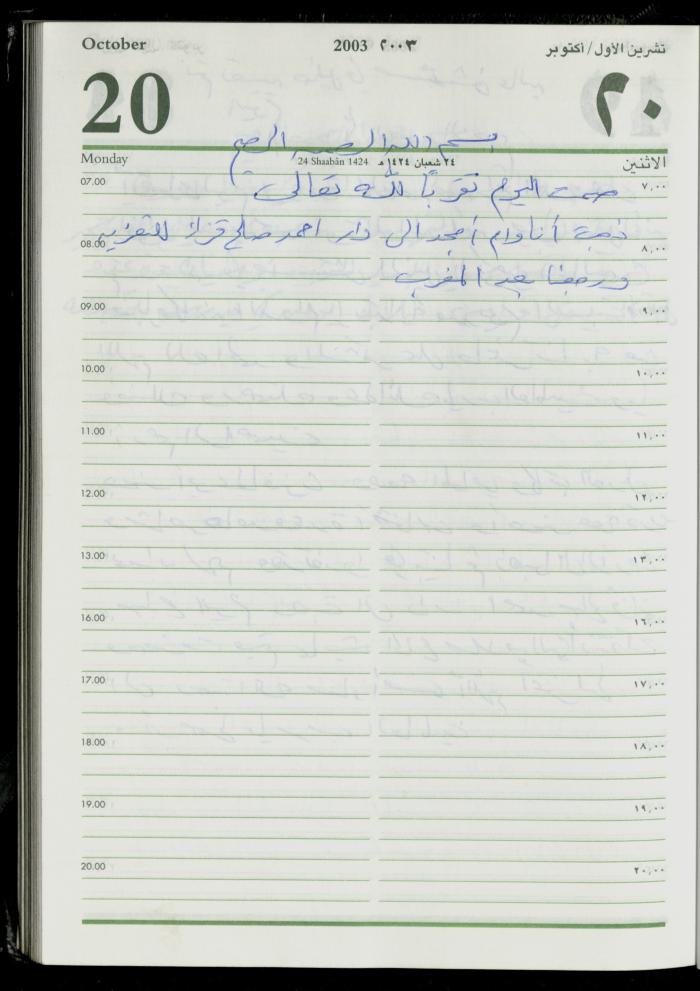 October 2003 ٢٠٠٣ تشرين الأول/أكتوبر
20 ٢٠
بسم الله الرحمن الرحيم
Monday 24 Shaabân 1424 ٢٤ شعبان ١٤٢٤ هـ الاثنين
07.00 صمت اليوم تقرباً لله تعالى ٧,٠٠
ذهبت أنا وام أمجد الى دار احمد صالح قزاز للتعزية
08.00 ٨,٠٠
ورجعنا بعد المغرب
09.00 ٩,٠٠
10.00 ١٠,٠٠
11.00 ١١,٠٠
12.00 ١٢,٠٠
13.00 ١٣,٠٠
16.00 ١٦,٠٠
17.00 ١٧,٠٠
18.00 ١٨,٠٠
19.00 ١٩,٠٠
20.00 ٢٠,٠٠